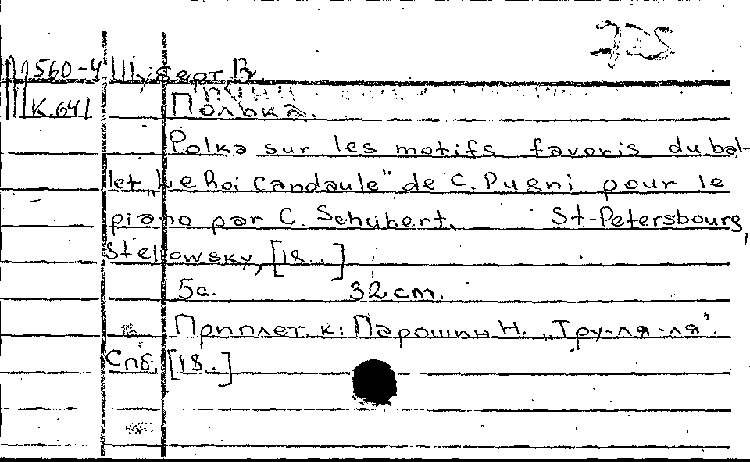 М 560-4 Шуберт В.
К.641 Полька.
Polka sur les motifs favoris du bal-
let „Le Roi Candaule" de C. Pugni pour le
piano par C. Schubert. St-Petersbourg,
Stellowsky, [18..]
5с. 32 cm.
Приплет. к: Парошин Н. „Тру-ля-ля".
Спб. [18..]